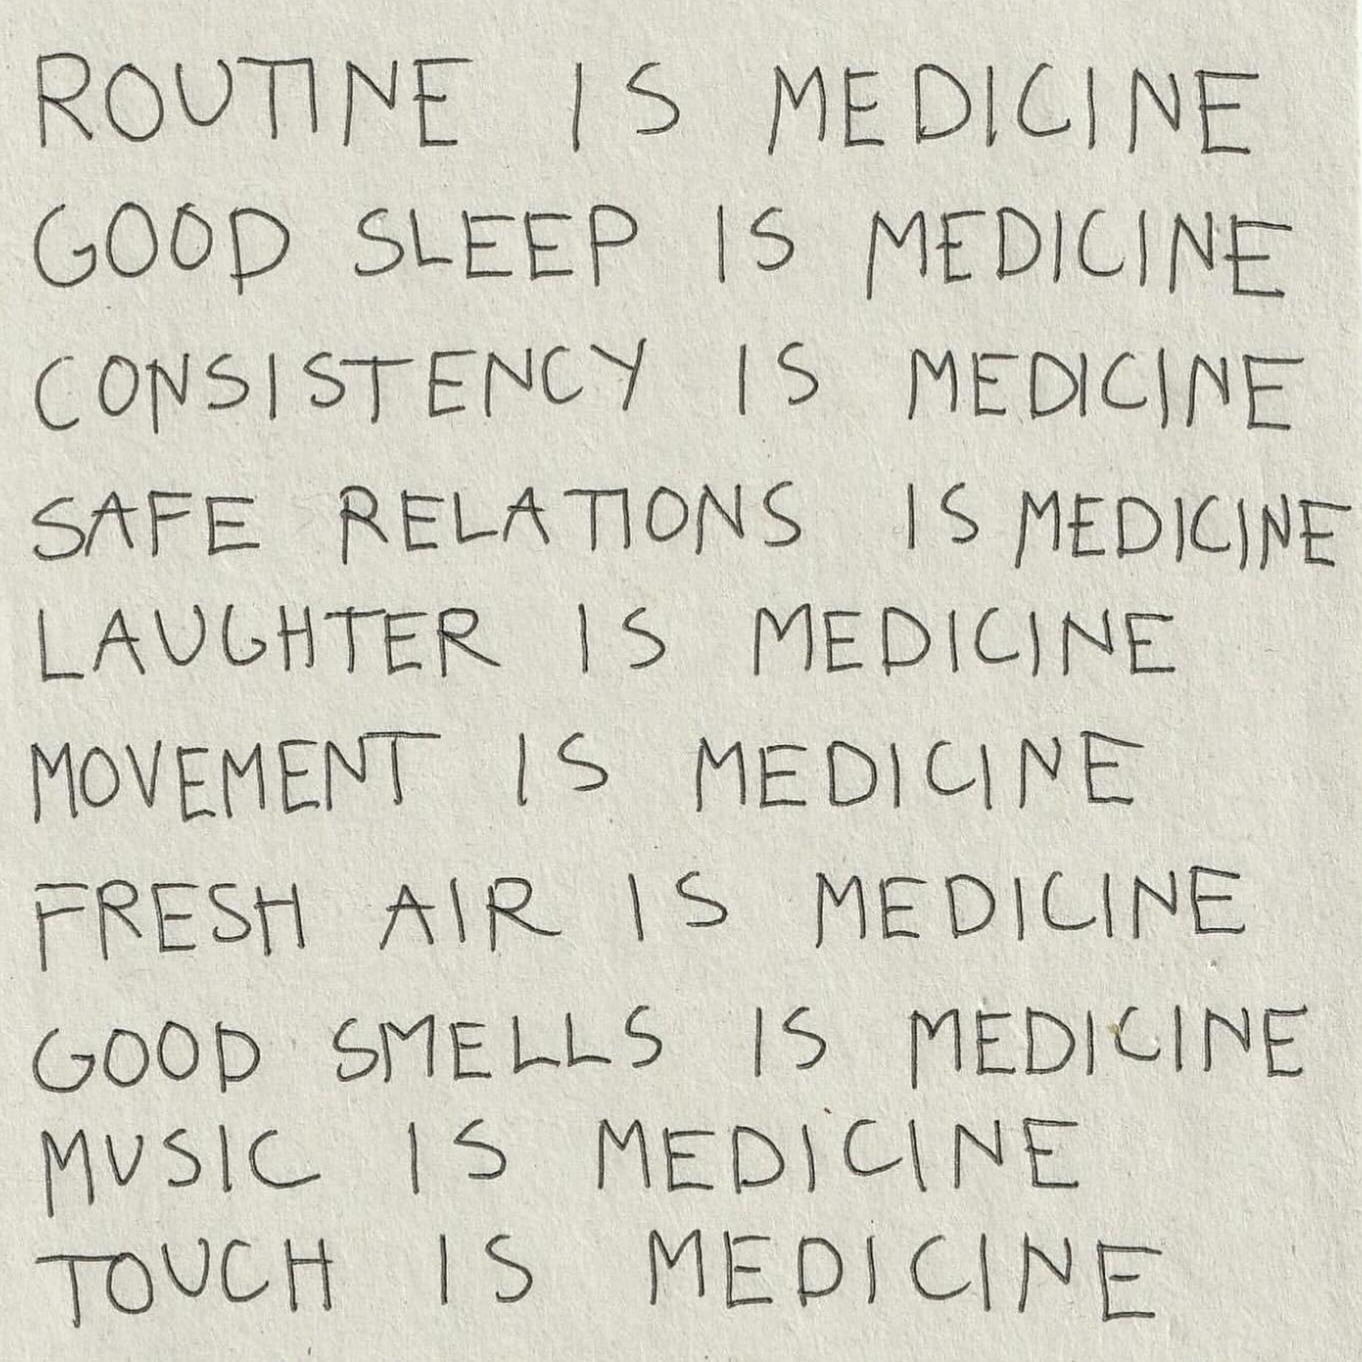 ROUTINE IS MEDICINE
GOOD SLEEP IS MEDICINE
CONSISTENCY IS MEDICINE
SAFE RELATIONS IS MEDICINE
LAUGHTER IS MEDICINE
MOVEMENT IS MEDICINE
FRESH AIR IS MEDICINE
GOOD SMELLS IS MEDICINE
MUSIC IS MEDICINE
TOUCH IS MEDICINE